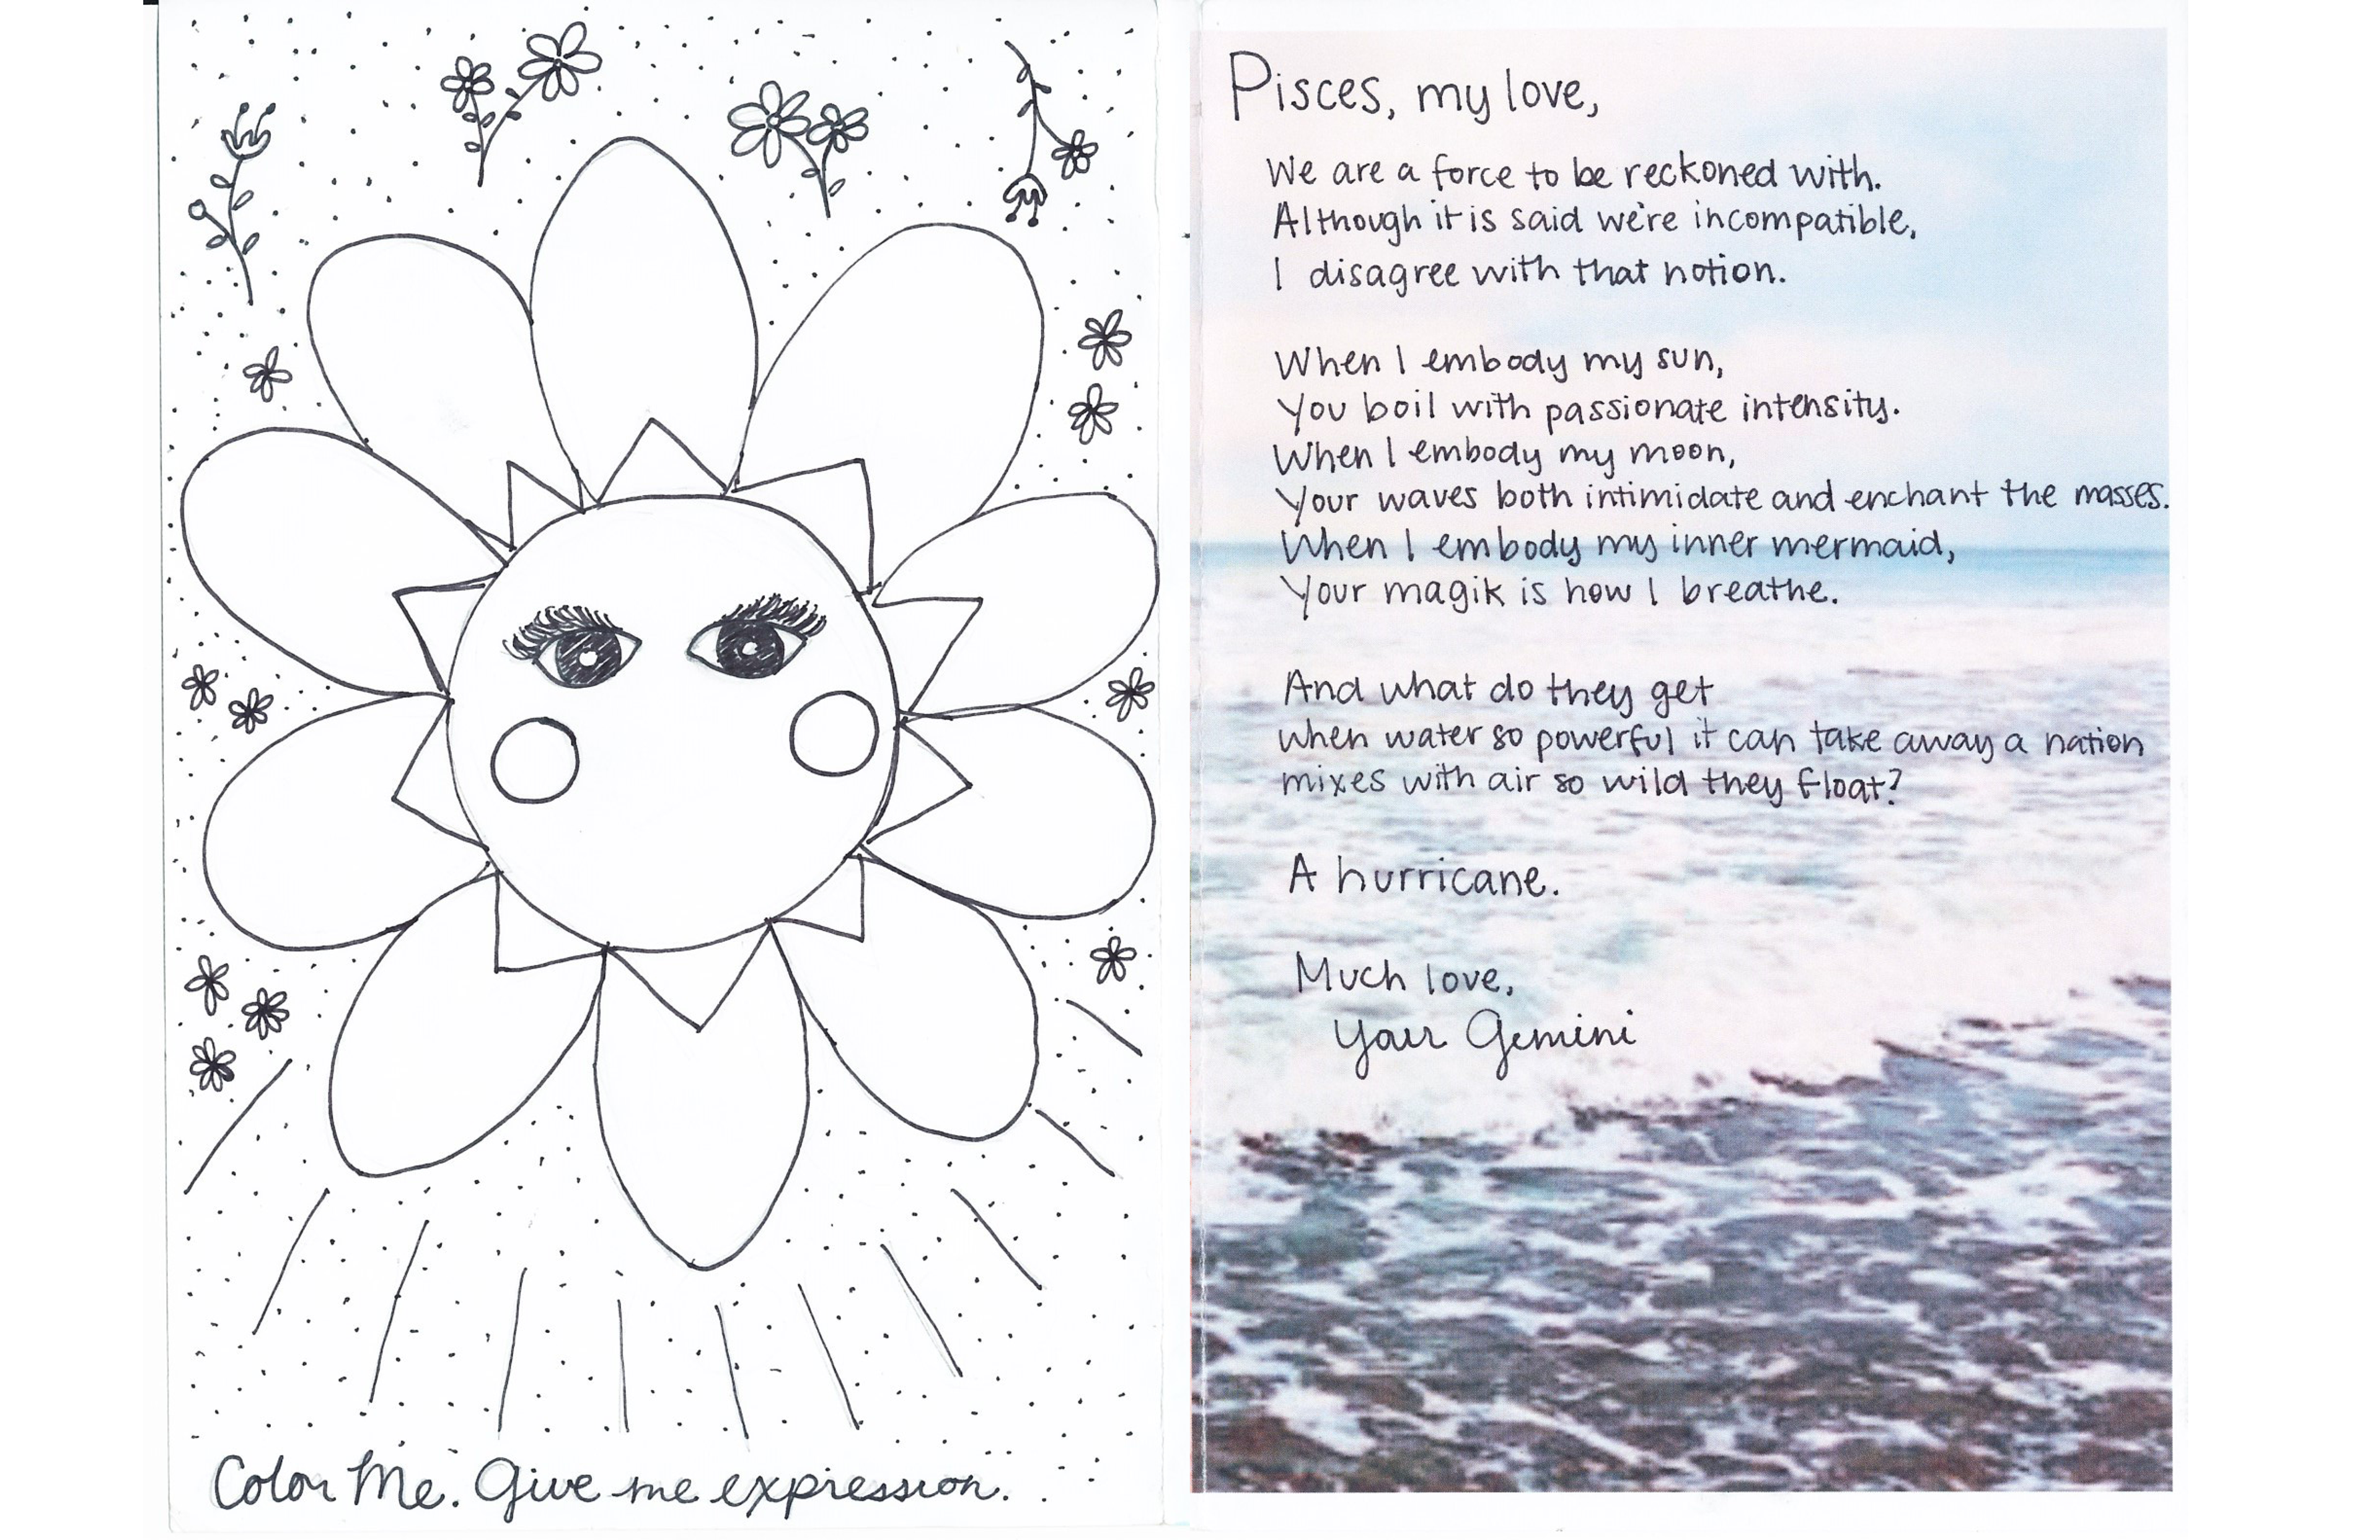 Color Me. Give me expression.
Pisces, my love,
We are a force to be reckoned with.
Although it is said we're incompatible,
I disagree with that notion.
When I embody my sun,
You boil with passionate intensity.
When I embody my moon,
Your waves both intimidate and enchant the masses.
When I embody my inner mermaid,
Your magik is how I breathe.
And what do they get
when water so powerful it can take away a nation
mixes with air so wild they float?
A hurricane.
Much love,
Your Gemini